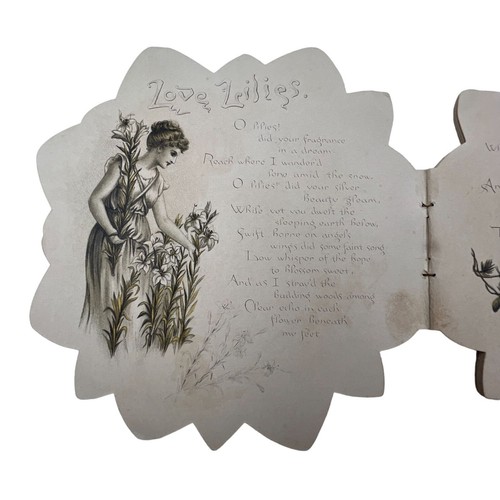 Love Lilies.
O lilies!
did your fragrance
in a dream
Reach where I wander'd
long amid the snow.
O lilies! did your silver
beauty gleam,
While yet you dwelt the
sleeping earth below.
Swift borne on angels
wings did some faint song
Low whisper of the hope
to blossom sweet,
And as I stray'd the
budding woods among
Clear echo in each
flower beneath
my feet